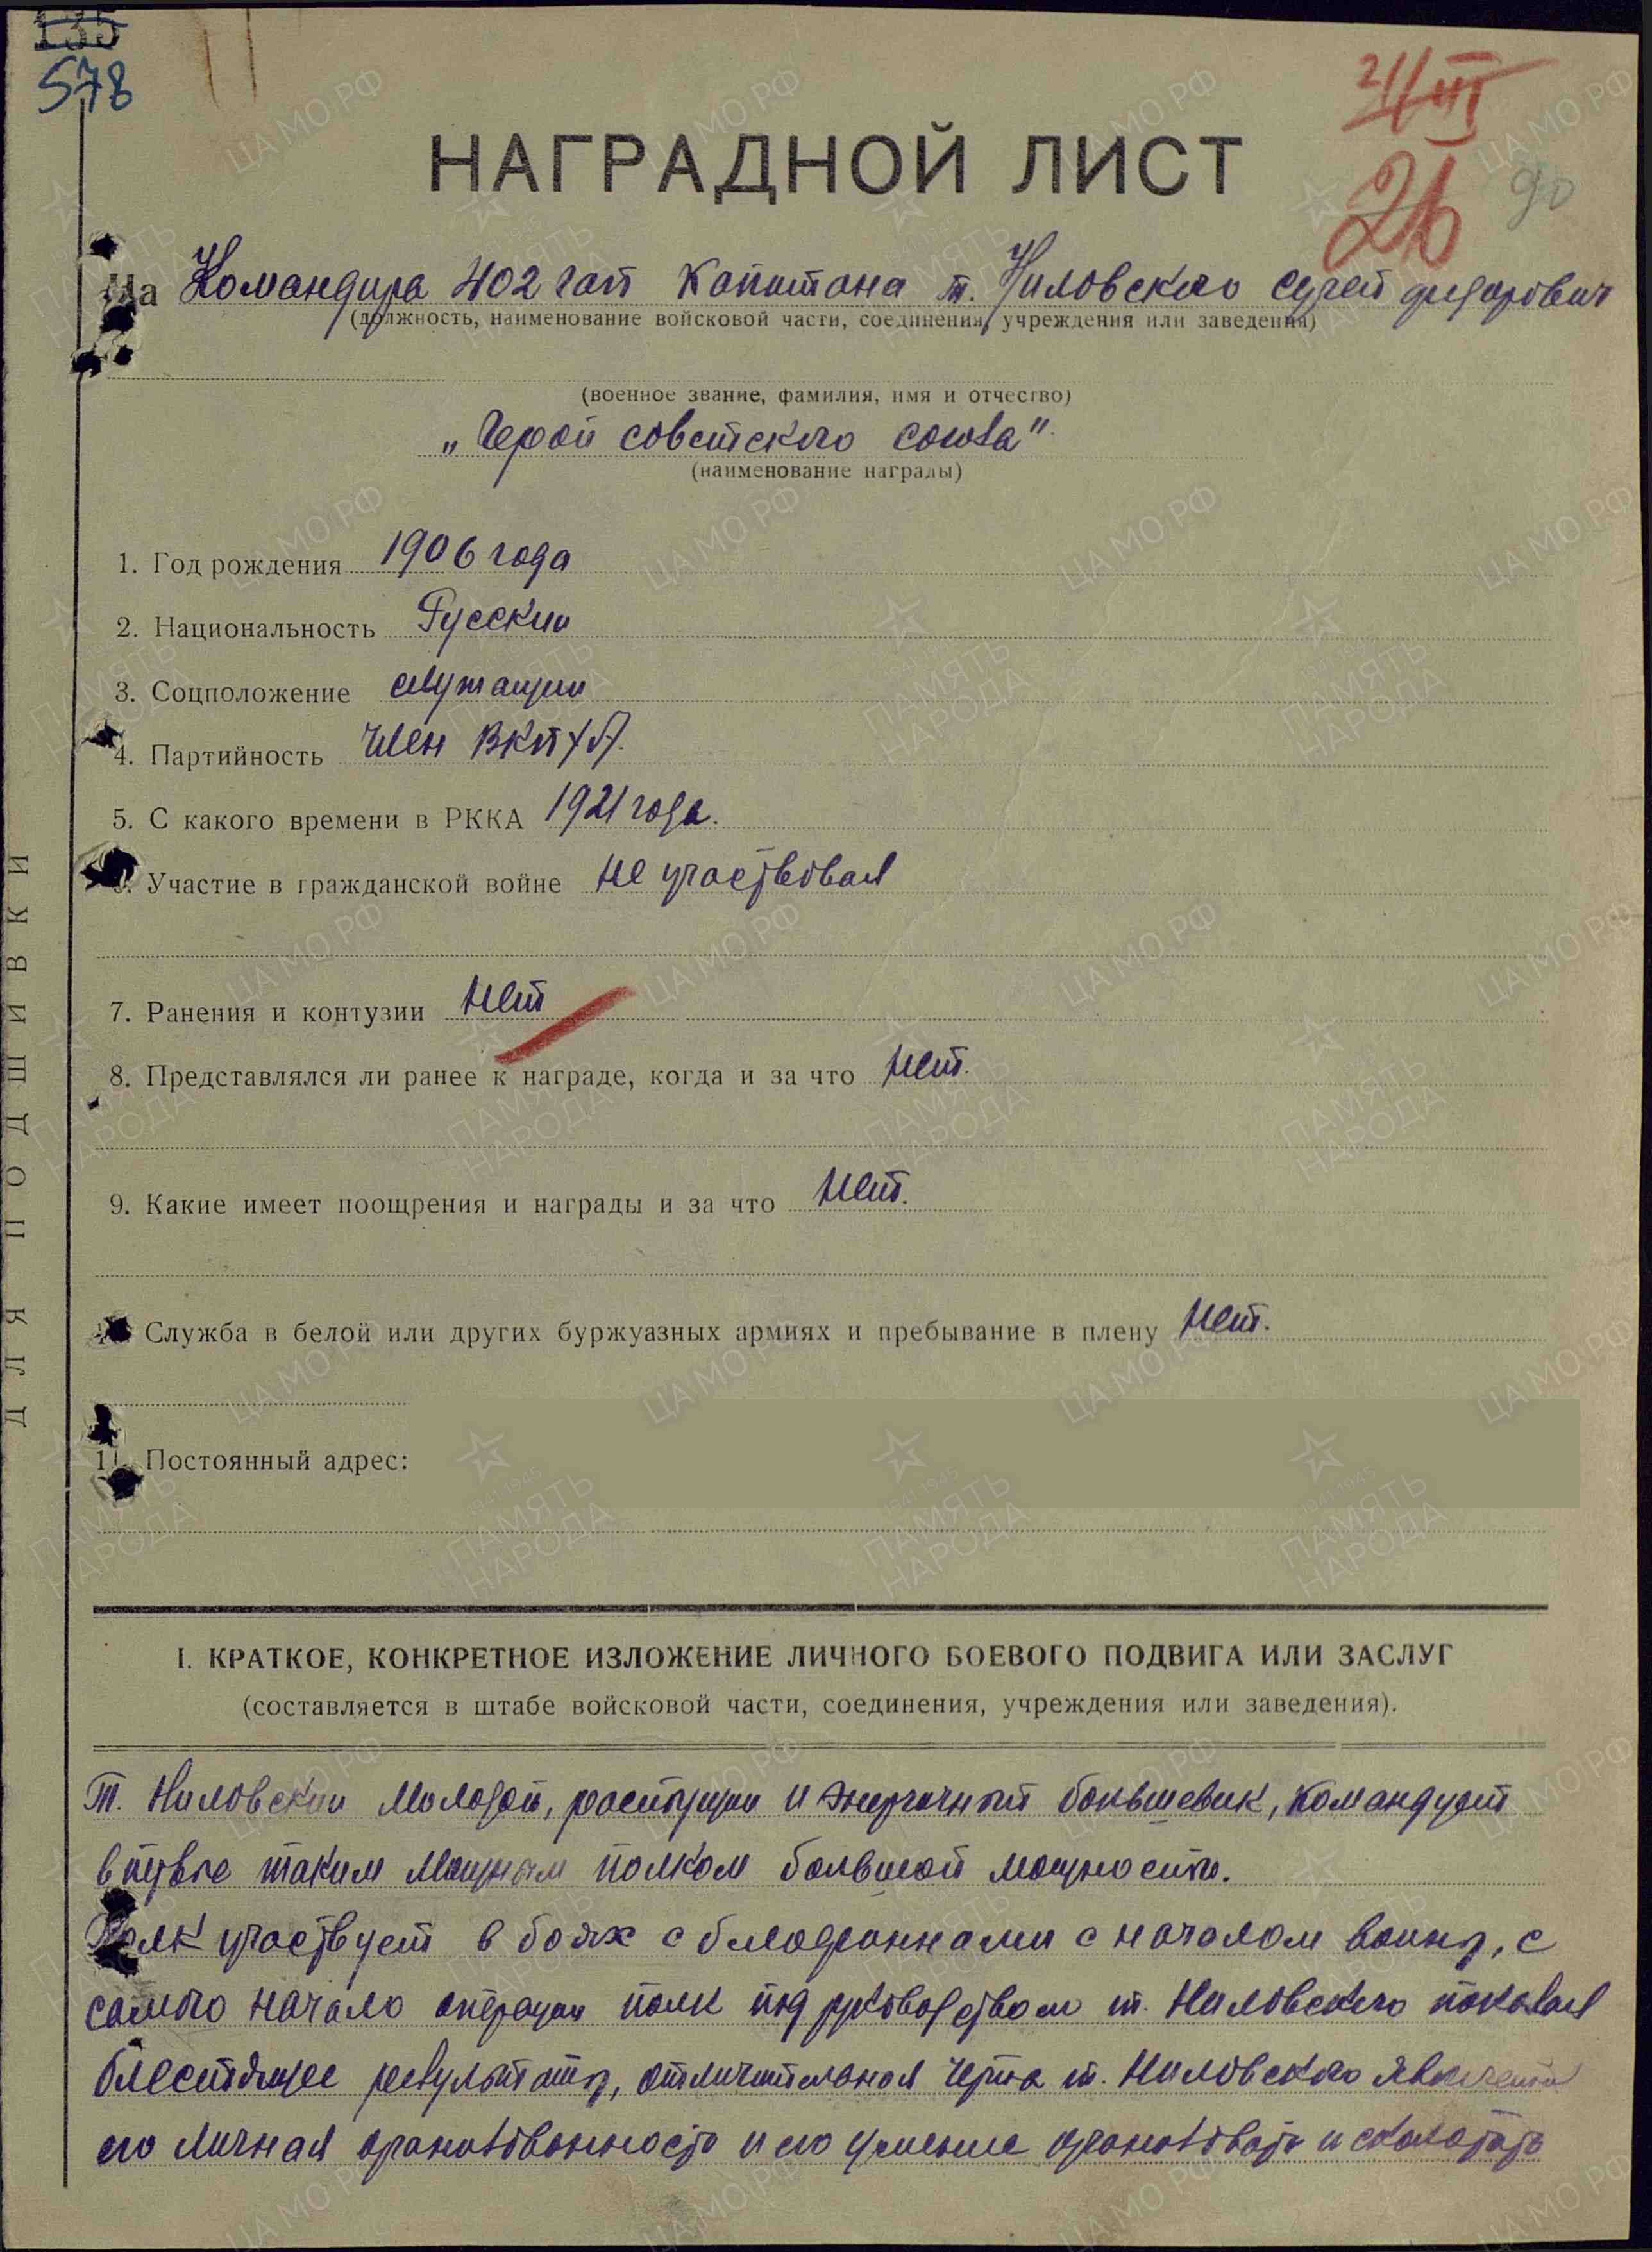 135
578
21/III
26
90
НАГРАДНОЙ ЛИСТ
На Командира 402 гап Капитана т. Ниловского Сергей Федорович
(должность, наименование войсковой части, соединения, учреждения или заведения)
(военное звание, фамилия, имя и отчество)
„Герой советского союза"
(наименование награды)
1. Год рождения 1906 года
2. Национальность Русский
3. Соцположение служащий
4. Партийность Член ВКП/б/.
5. С какого времени в РККА 1921 года.
6. Участие в гражданской войне не участвовал
7. Ранения и контузии нет
8. Представлялся ли ранее к награде, когда и за что нет.
9. Какие имеет поощрения и награды и за что нет.
Служба в белой или других буржуазных армиях и пребывание в плену нет.
11. Постоянный адрес:
I. КРАТКОЕ, КОНКРЕТНОЕ ИЗЛОЖЕНИЕ ЛИЧНОГО БОЕВОГО ПОДВИГА ИЛИ ЗАСЛУГ
(составляется в штабе войсковой части, соединения, учреждения или заведения).
т. Ниловский молодой, растущий и энергичный большевик, командует
впервые таким мощным полком большой мощности.
Полк участвует в боях с белофиннами с началом войны, с
самого начало операции полк под руководством т. Ниловского показал
блестящее результаты, отличительная черта т. Ниловского является
его личная организованность и его умение организовать и сколотить
ДЛЯ ПОДШИВКИ
ЦАМО РФ
ПАМЯТЬ НАРОДА
1941-1945